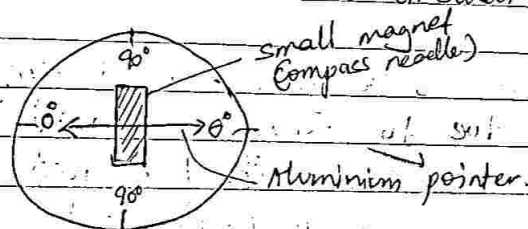 90°
small magnet
(compass needle)
0°
θ°
Aluminium pointer.
90°